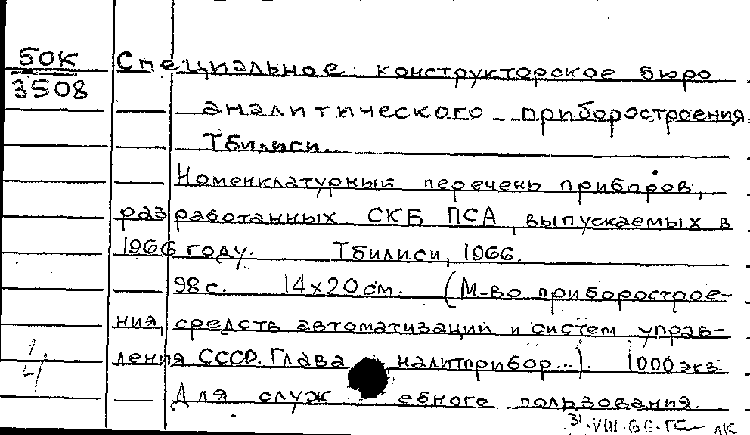 50К
3508
Специальное конструкторское бюро
аналитического приборостроения.
Тбилиси.
Номенклатурный перечень приборов,
разработанных СКБ ПСА, выпускаемых в
1966 году. Тбилиси, 1966.
98 с. 14x20 см. (М-во приборострое-
ния, средств автоматизаций и систем управ-
ления СССР. Глава налитприбор...). 1000 экз
Для служебного пользования.
31.VIII.66.